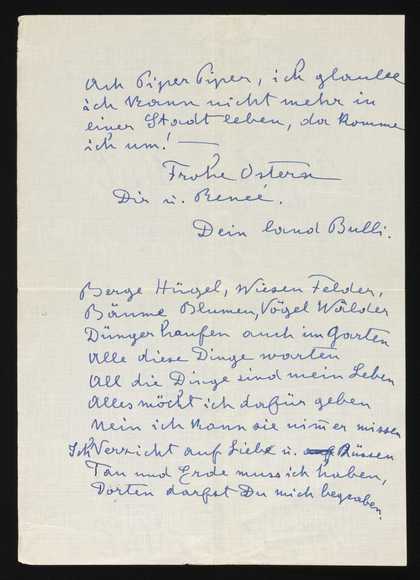 Ach Piper Piper, ich glaube
ich kann nicht mehr in
einer Stadt leben, da komme
ich um! —
Frohe Ostern
Dir u. Reneé.
Dein land Bulli.
Berge Hügel, Wiesen Felder,
Bäume Blumen, Vögel Wälder
Düngerhaufen auch im Garten
Alle diese Dinge warten
All die Dinge sind mein Leben
Alles möcht ich dafür geben
Nein ich kann sie nim̄er missen
Ich Verzicht auf Liebe u. Küssen
Tau und Erde muss ich haben,
Dorten darfst Du mich begraben.